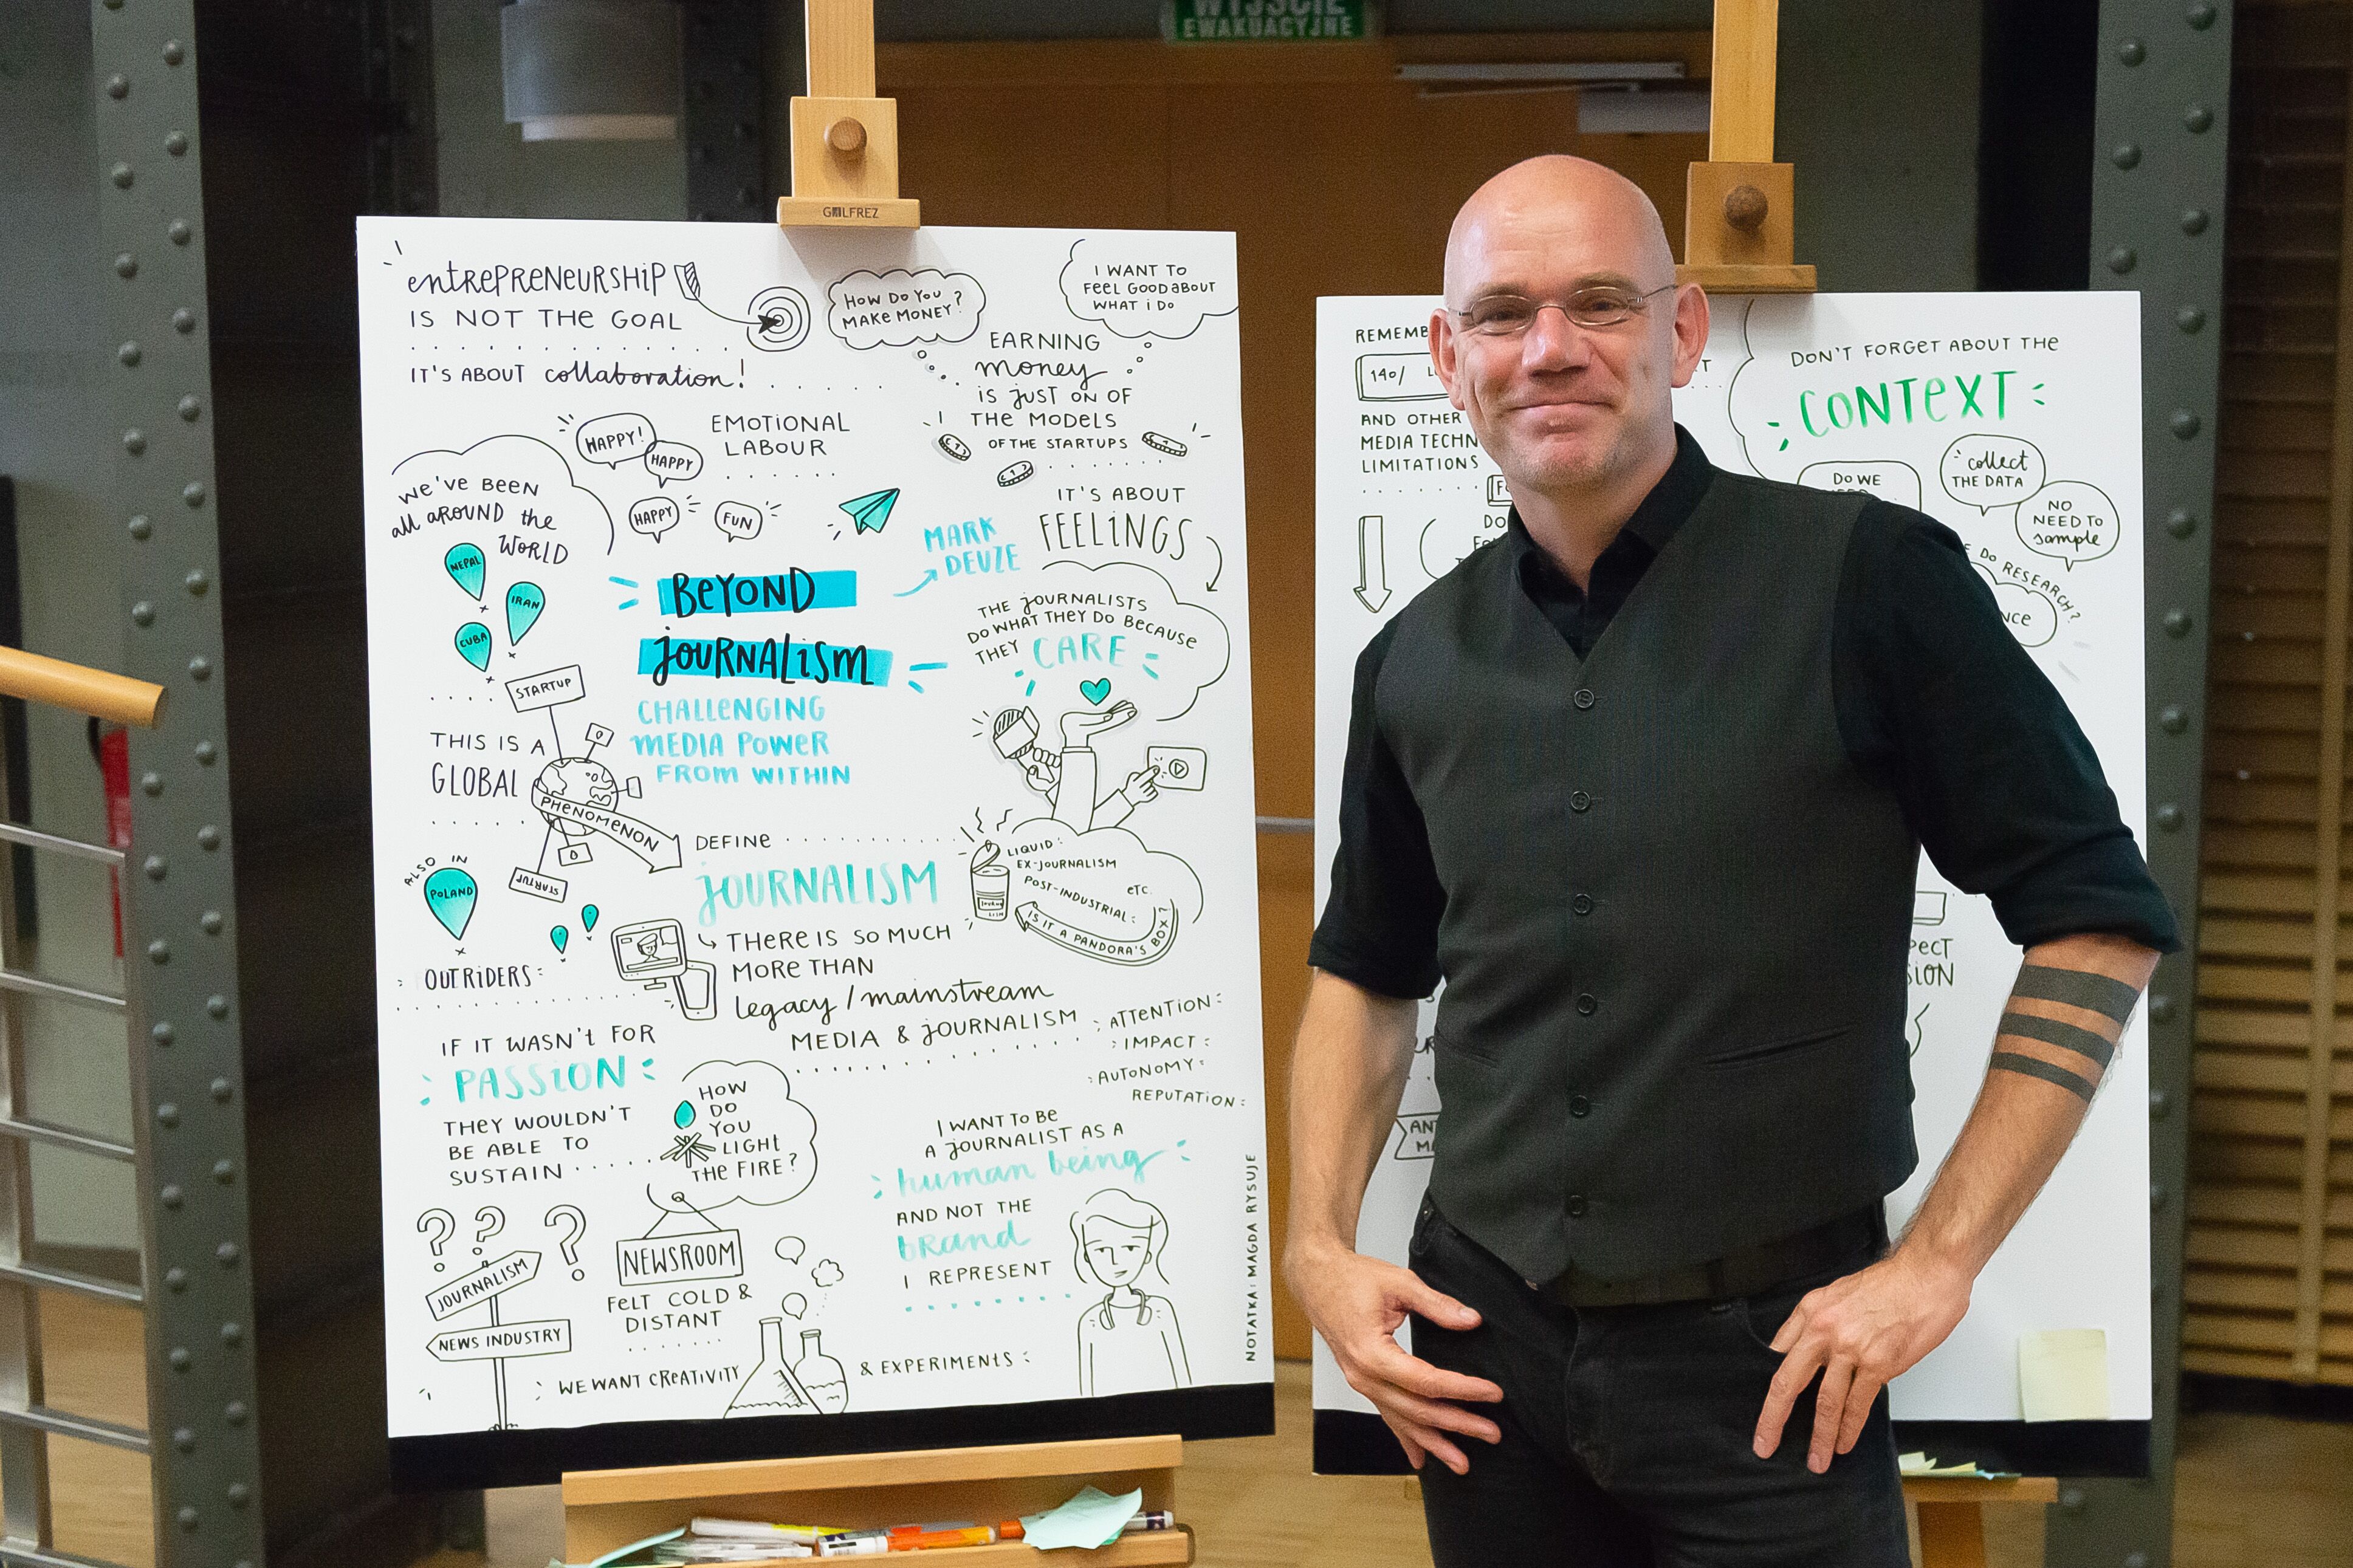 WYJŚCIE
EWAKUACYJNE
GALFREZ
entrepreneurship
IS NOT THE GOAL
IT'S ABOUT collaboration!
HOW DO YOU
MAKE MONEY?
I WANT TO
FEEL GOOD ABOUT
WHAT I DO
EARNING
money
IS JUST ON OF
THE MODELS
OF THE STARTUPS
EMOTIONAL
LABOUR
HAPPY!
HAPPY
HAPPY
FUN
WE'VE BEEN
all AROUND the
WORLD
NEPAL
IRAN
CUBA
IT'S ABOUT
FEELINGS
MARK
DEUZE
BEYOND
JOURNALISM
CHALLENGING
MEDIA POWER
FROM WITHIN
THE JOURNALISTS
DO WHAT THEY DO BECAUSE
THEY CARE
STARTUP
THIS IS A
GLOBAL
PHENOMENON
STARTUP
ALSO IN
POLAND
OUTRIDERS:
DEFINE
JOURNALISM
THERE IS SO MUCH
MORE THAN
legacy/mainstream
MEDIA & JOURNALISM
LIQUID:
EX-JOURNALISM
POST-INDUSTRIAL:
ETC.
IS IT A PANDORA'S BOX?
JOURNALISM
ATTENTION:
IMPACT:
AUTONOMY:
REPUTATION:
IF IT WASN'T FOR
PASSION
THEY WOULDN'T
BE ABLE TO
SUSTAIN
HOW
DO
YOU
LIGHT
THE FIRE?
I WANT TO BE
A JOURNALIST AS A
human being
AND NOT THE
brand
I REPRESENT
? ? ?
JOURNALISM
NEWS INDUSTRY
NEWSROOM
FELT COLD &
DISTANT
WE WANT CREATIVITY
& EXPERIMENTS:
NOTATKA: MAGDA RYSUJE
REMEMB
140/
AND OTHER
MEDIA TECHN
LIMITATIONS
DON'T FORGET ABOUT THE
CONTEXT
DO WE
collect
THE DATA
NO
NEED TO
sample
DO RESEARCH?
NCE
PECT
SION